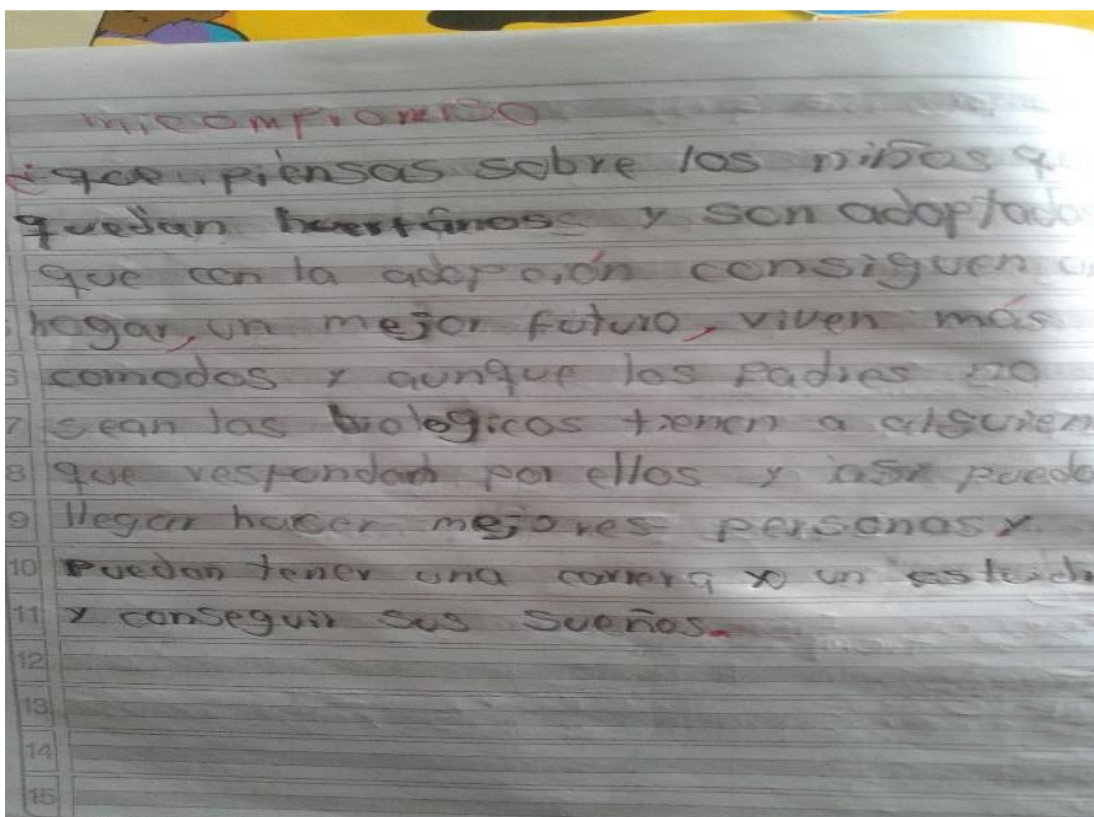 mi compromiso
¿que piensas sobre los niños q
quedan huerfanos y son adoptado
que con la adopción consiguen u
hogar, un mejor futuro, viven más
comodos y aunque los padres no
7 sean las biologicos tienen a alguien
8 que respondan por ellos y asi puede
9 llegar hacer mejores personas y
10 puedan tener una carrera o un estudi
11 y conseguir sus sueños.
12
13
14
15